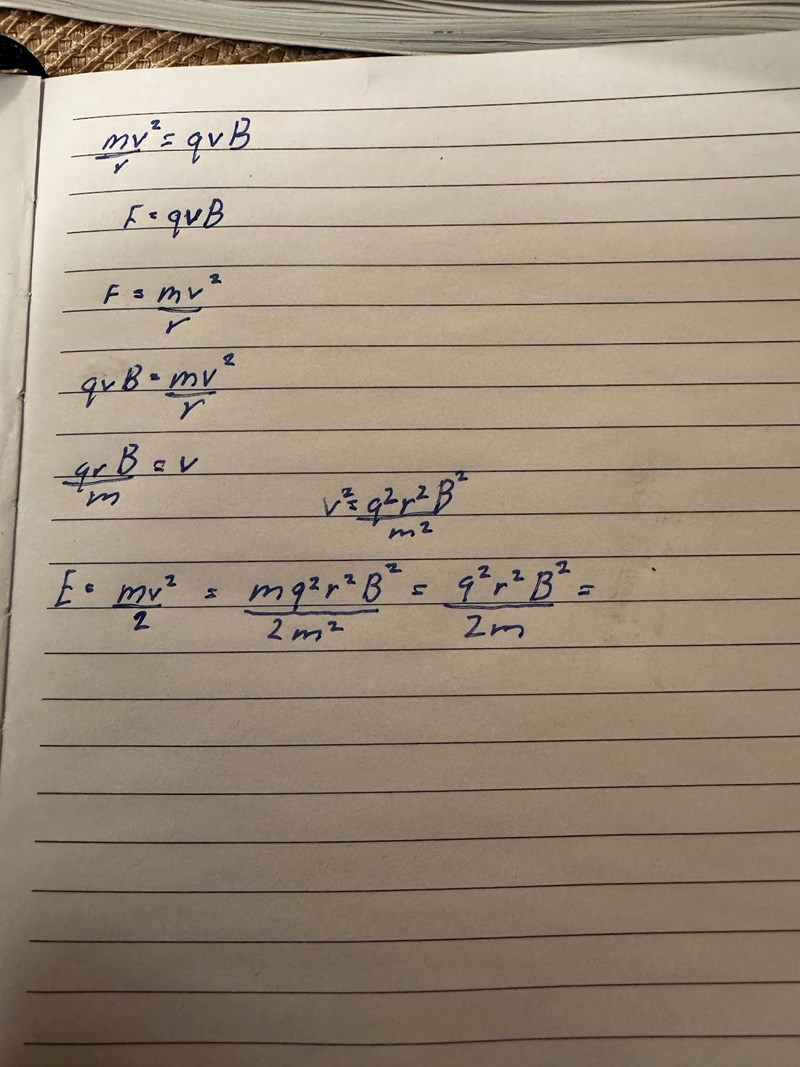 mv²/r = qvB
F = qvB
F = mv²/r
qvB = mv²/r
qrB/m = v
v² = q²r²B²/m²
E = mv²/2 = mq²r²B²/2m² = q²r²B²/2m =